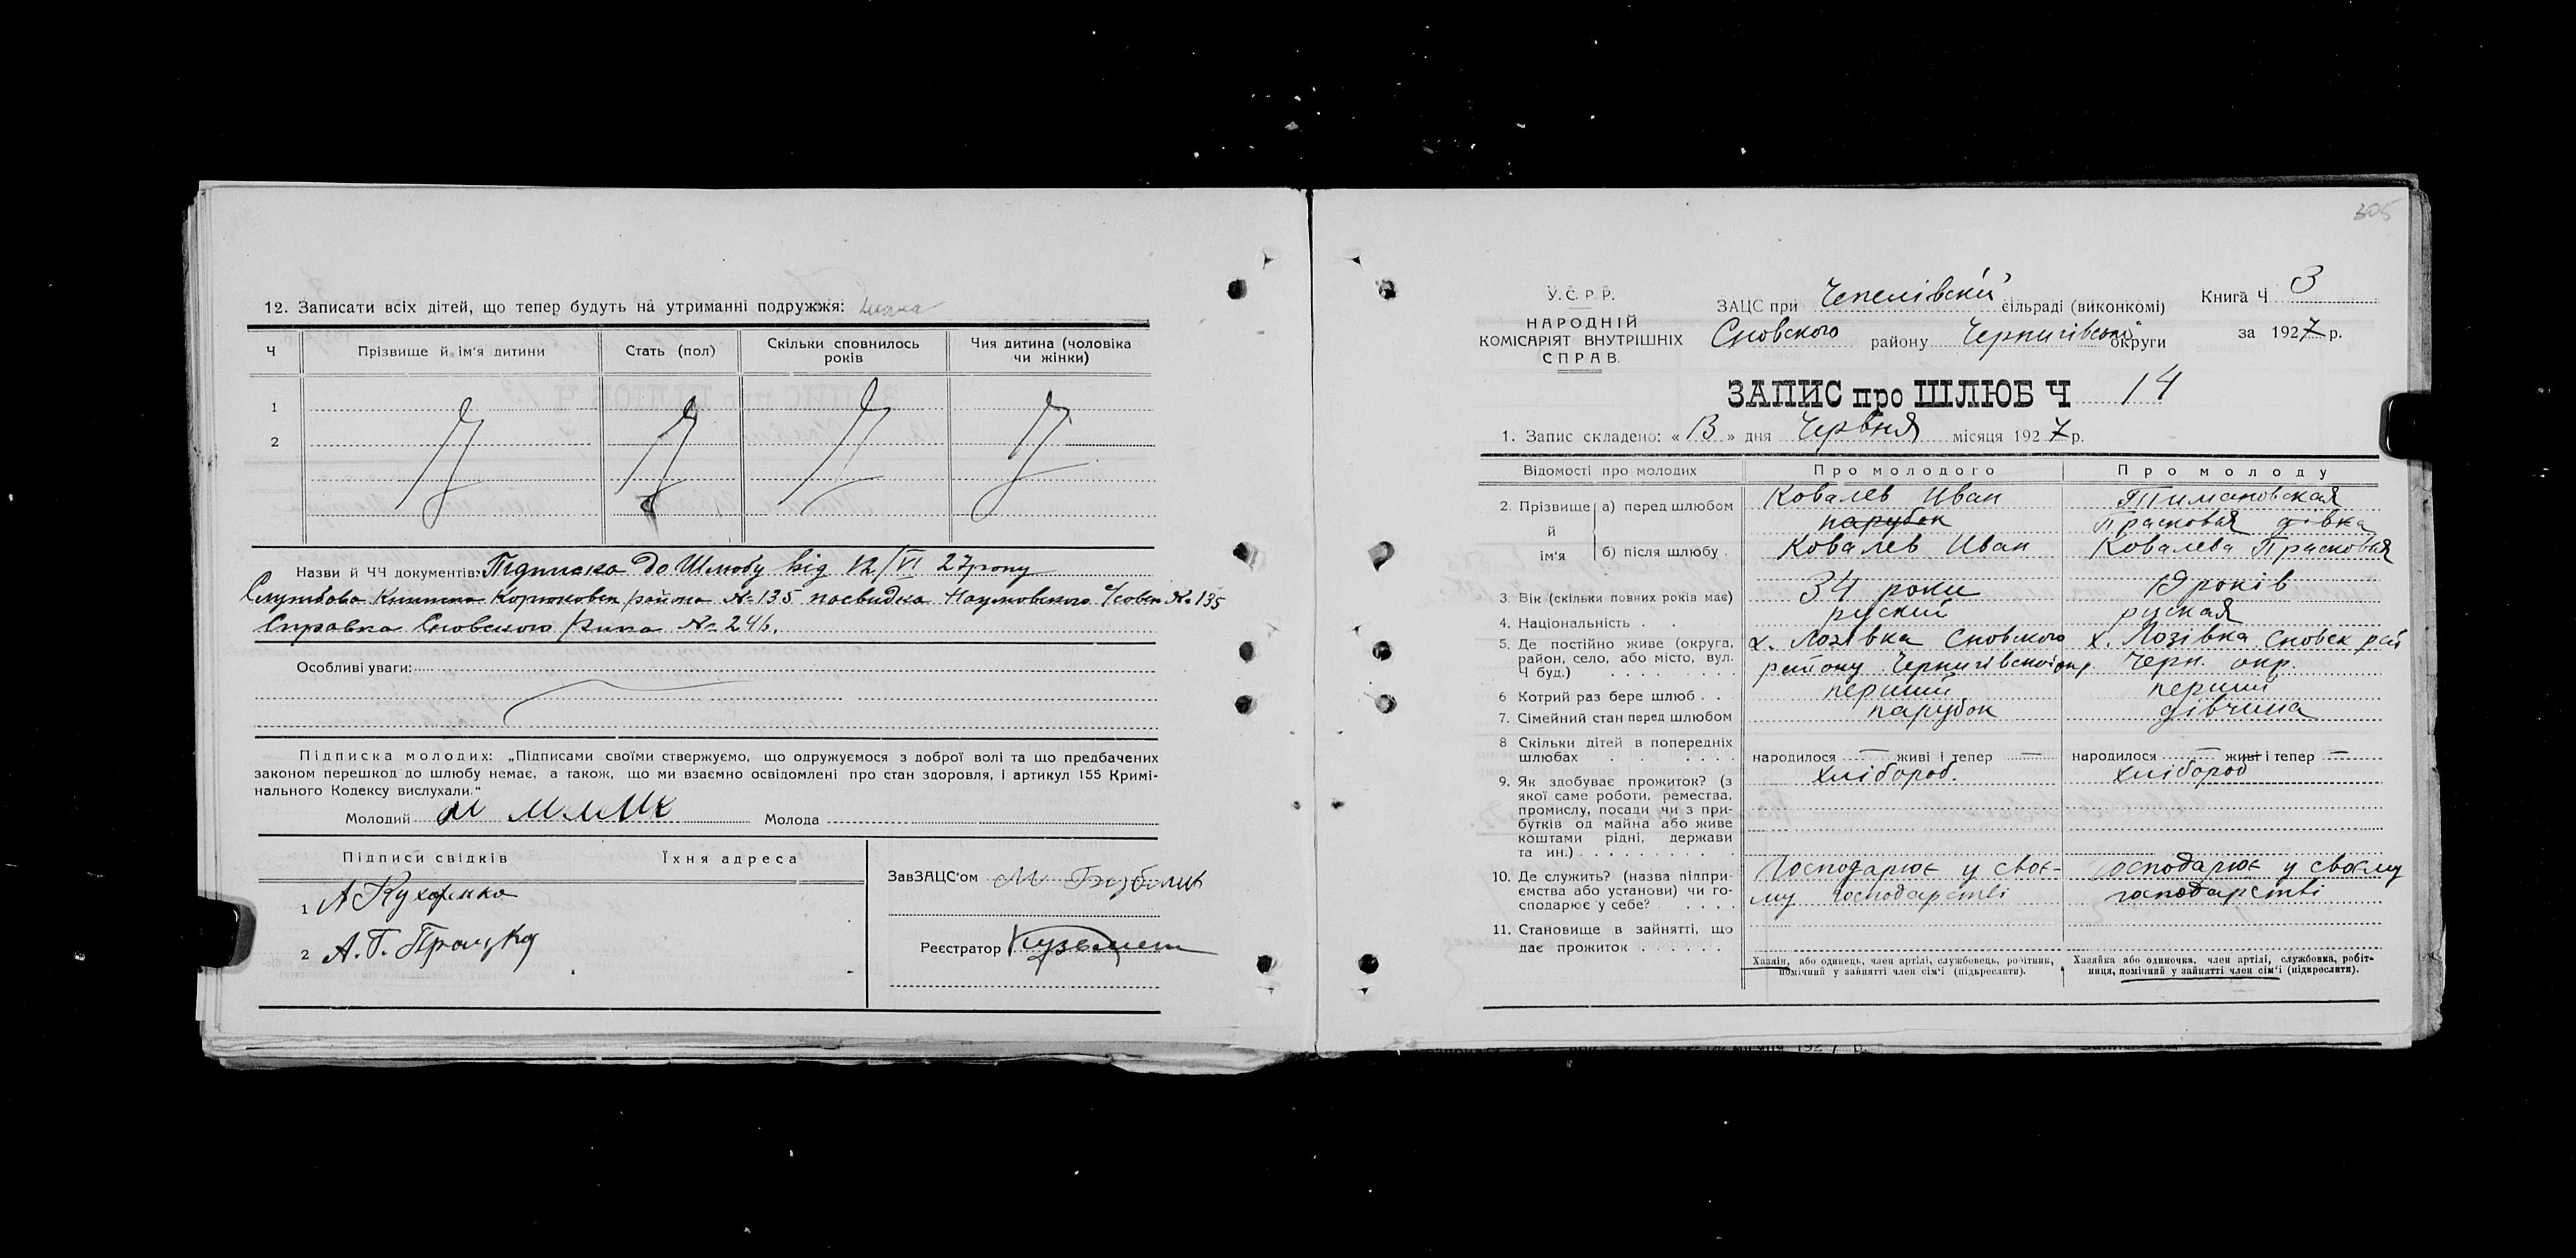 12. Записати всіх дітей, що тепер будуть на утриманні подружжя:
Ч
Прізвище й ім'я дитини
Стать (пол)
Скільки сповнилось
років
Чия дитина (чоловіка
чи жінки)
1
2
Назви й ЧЧ документів: Підписка до Шлюбу від 12/VI 27 року
Службова Книжка Корюковск района № 135 посвидка Наумовского № 135
Справка Сновського Рика № 246.
Особливі уваги:
Підписка молодих: „Підписами своїми ствержуємо, що одружуємося з доброї волі та що предбачених
законом перешкод до шлюбу немає, а також, що ми взаємно освідомлені про стан здоровля, і артикул 155 Кримі-
нального Кодексу вислухали."
Молодий
Молода
Підписи свідків
Їхня адреса
1 А Кухаренко
2 А. Г. Процко
ЗавЗАЦС'ом М
Реєстратор
305
У. С. Р. Р.
НАРОДНІЙ
КОМІСАРІЯТ ВНУТРІШНІХ
СПРАВ.
ЗАЦС при Чепелівскій сільраді (виконкомі)
Сновского району Чернигівської округи
Книга Ч 3
за 1927 р.
ЗАПИС про ШЛЮБ Ч 14
1. Запис складено: « 13 » дня Червня місяця 1927 р.
Відомості про молодих
Про молодого
Про молоду
2. Прізвище й ім'я
а) перед шлюбом
Ковалев Иван
парубок
Тимановская
Прасковья дівка
б) після шлюбу
Ковалев Иван
Ковалева Прасковья
3. Вік (скільки повних років має)
34 роки
19 років
4. Національність
руский
руская
5. Де постійно живе (округа,
район, село, або місто, вул.
Ч буд.)
х. Лозівка Сновского
району Чернигівской окр.
х. Лозівка Сновск рай
Черн. окр.
6 Котрий раз бере шлюб
перший
перший
7. Сімейний стан перед шлюбом
парубок
дівчина
8 Скільки дітей в попередніх
шлюбах
народилося — живі і тепер —
народилося — живі і тепер —
9. Як здобуває прожиток? (з
якої саме роботи, ремества,
промислу, посади чи з при-
бутків од майна або живе
коштами рідні, держави
та ин.)
хлібороб.
хлібороб
10. Де служить? (назва підпри-
ємства або установи) чи го-
сподарює у себе?
Господарює у своє-
му господарстві
Господарює у своєму
господарстві
11. Становище в зайнятті, що
дає прожиток
Хазяін, або одинець, член артілі, службовець, робітник,
помічний у зайнятті член сім'і (підкреслити).
Хазяйка або одиночка, член артілі, службовка, робіт-
ниця, помічний у зайнятті член сім'і (підкреслити).